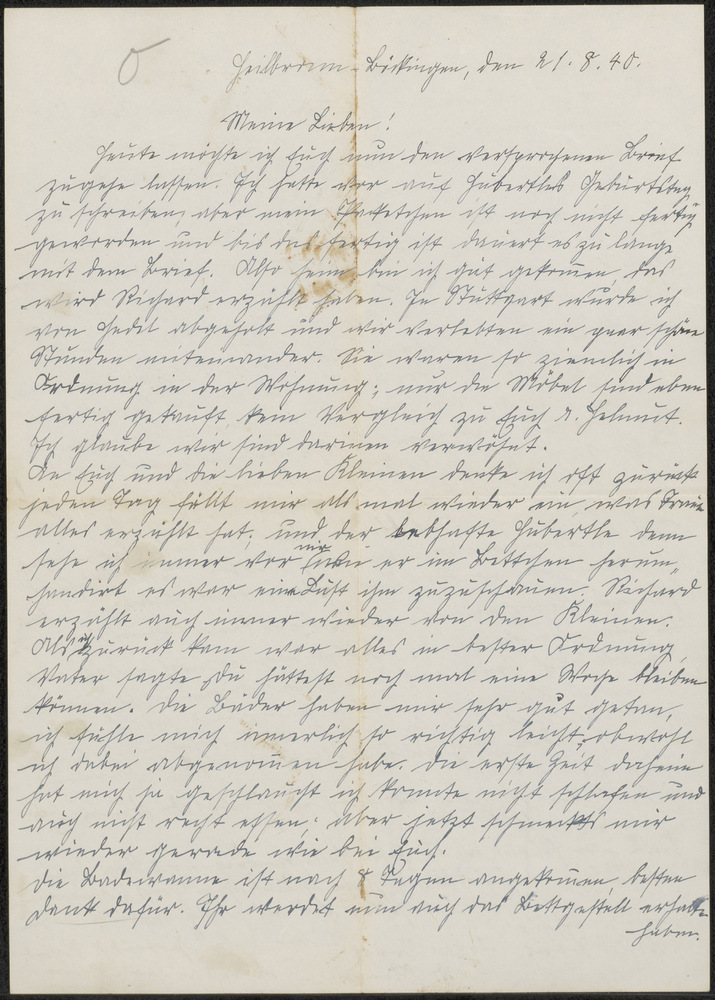 Heilbronn-Böckingen, den 21.8.40.
Meine Lieben!
Heute möchte ich Euch nun den versprochenen Brief
zugehe lassen. Ich hatte vor auf Hubertles Geburtstag
zu schreiben, aber mein Paketchen ist noch nicht fertig
geworden und bis das fertig ist dauert es zu lange
mit dem Brief. Also heim bin ich gut gekommen, das
wird Richard erzählt haben. In Stuttgart wurde ich
von Hedel abgeholt und wir verlebten ein paar schöne
Stunden miteinander. Sie waren so ziemlich in
Ordnung in der Wohnung; nur die Möbel sind eben
fertig gekauft, kein Vergleich zu Euch u. Helmut.
Ich glaube wir sind darinnen verwöhnt.
An Euch und die lieben Kleinen denke ich oft zurück
jeden Tag fällt mir als mal wieder ein, was
alles erzählt hat, und der lebhafte Hubertle denn
sehe ich immer vor mir wie er im Bettchen herum
handirt es war eine Lust ihm zuzuschauen. Richard
erzählt auch immer wieder von den Kleinen.
Als ich zurück kam war alles in bester Ordnung,
Vater sagte Du hättest noch mal eine Woche bleiben
können. Die Bäder haben mir sehr gut getan,
ich fühle mich innerlich so richtig leicht, obwohl
ich dabei abgenommen habe. Die erste Zeit daheim
hat mich ja geschlaucht ich konnte nicht schlafen und
auch nicht recht essen; aber jetzt schmeckts mir
wieder gerade wie bei Euch.
Die Badewanne ist nach 8 Tagen angekommen, besten
Dank dafür. Ihr werdet nun auch das Bettgestell erhalten
haben.